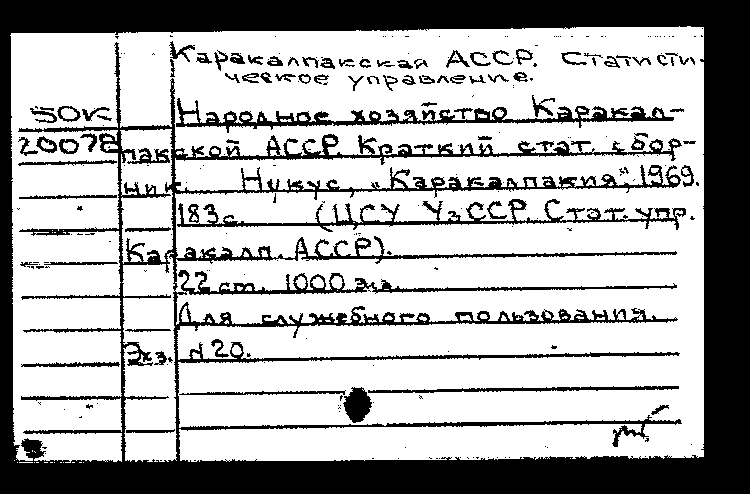 Каракалпакская АССР. Статисти-
ческое управление.
50К Народное хозяйство Каракал-
20078 пакской АССР. Краткий стат. сбор-
ник. Нукус, "Каракалпакия", 1969.
183с. (ЦСУ УзССР. Стат. упр.
Каракалп. АССР).
22 ст. 1000 экз.
Для служебного пользования.
Экз. N 20.